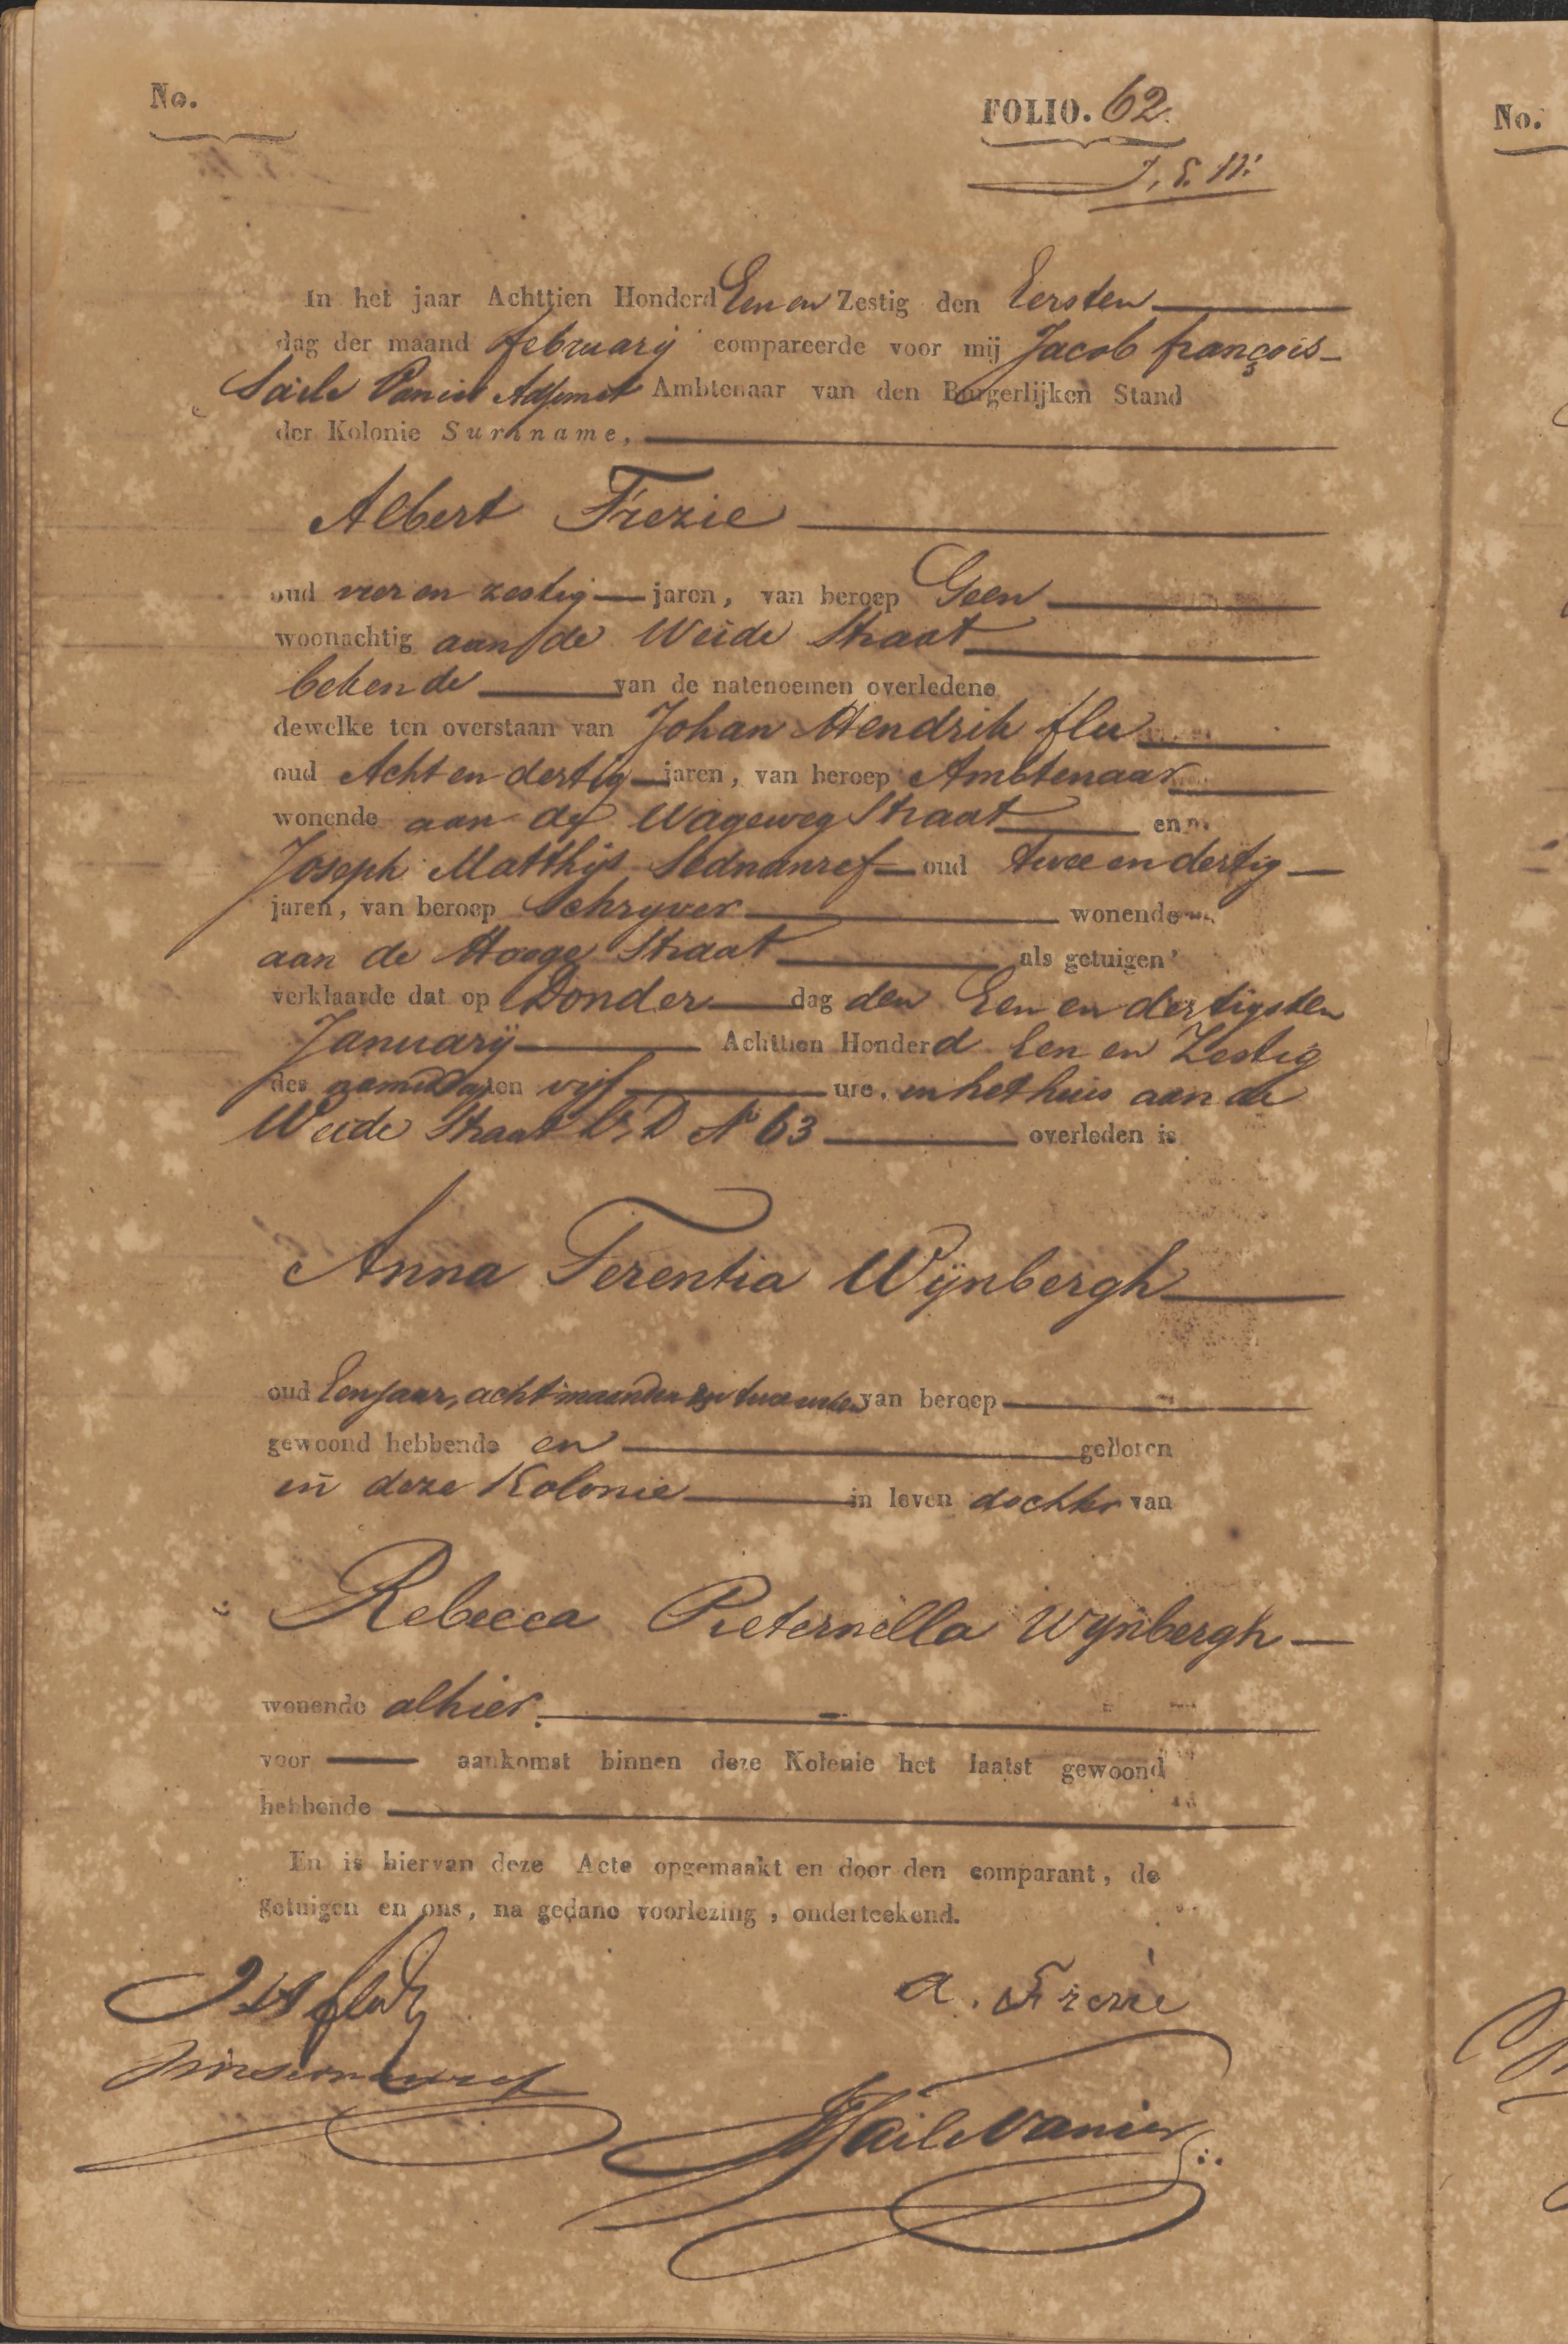 No.
FOLIO. 62.
In het jaar Achttien Honderd Een en Zestig den Eersten
dag der maand february compareerde voor mij Jacob françois
Saile Vanier Adjunct Ambtenaar van den Burgerlijken Stand
der Kolonie Suriname,
Albert Frezie
oud vier en zestig jaren, van beroep Geen
woonachtig aan de Weide Straat
bekende van de natenoemen overledene
dewelke ten overstaan van Johan Hendrik flu
oud Acht en dertig jaren, van beroep Ambtenaar
wonende aan de Wageweg Straat en
Joseph Matthijs Sednanref oud twee en dertig
jaren, van beroep Schryver wonende
aan de Hooge Straat als getuigen
verklaarde dat op Donderdag den Een en dertigsten
January Achttien Honderd Een en Zestig
des namiddags ten vijf ure, in het huis aan de
Weide Straat Lr. D No 63 overleden is
Anna Terentia Wijnbergh
oud Een jaar, acht maanden van beroep
gewoond hebbende en geboren
in deze Kolonie in leven dochter van
Rebecca Pieternella Wynbergh
wonende alhier.
voor aankomst binnen deze Kolonie het laatst gewoond
hebbende
En is hiervan deze Acte opgemaakt en door den comparant, de
getuigen en ons, na gedane voorlezing, onderteekend.
JHflu
a. Frezie
JMSednanref
Saile Vanier
No.